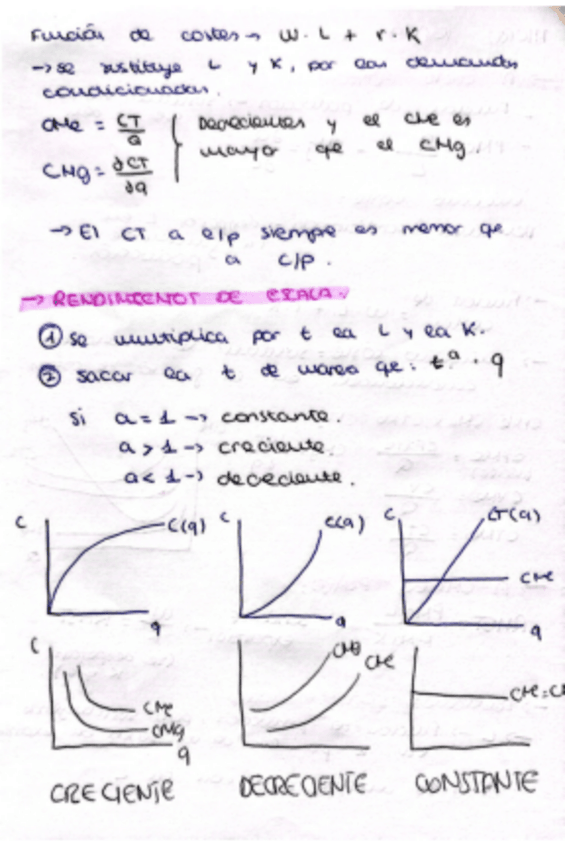 Función de costes → W·L + r·K
→ se sustituye L y K, por las demandas
condicionadas.
CMe = CT/Q { Decrecientes y el CMe es
CMg = ∂CT/∂q mayor que el CMg
→ El CT a l/p siempre es menor qe
a c/p.
→ RENDIMIENTOS DE ESCALA.
① se multiplica por t la L y la K.
② sacar la t de manera qe: tᵃ · q
si a = 1 → constante.
a > 1 → creciente.
a < 1 → decreciente.
C C(q) C C(q) C CT(q)
CMe
q q q
C CMg
CMe CMe
CMg CMe=C
q
CRECIENTE DECRECIENTE CONSTANTE